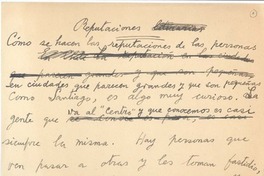 Reputaciones
Cómo se hacen las reputaciones de las personas
en ciudades que parecen grandes y que son pequeñas
Como Santiago, es algo muy curioso. La
gente que va al "Centro" y que conocemos es casi
siempre la misma. Hay personas que
ven pasar a otras y les toman fastidio,